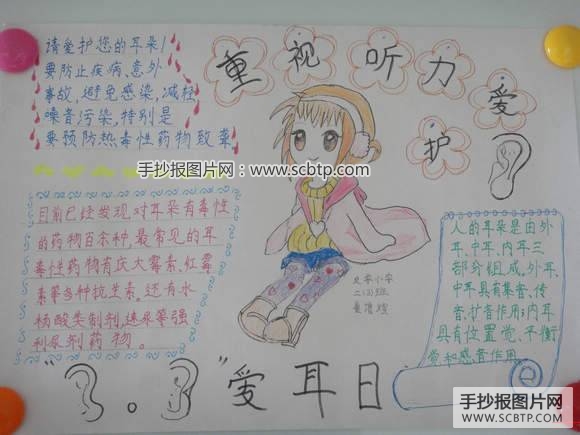 请爱护您的耳朵!
要防止疾病、意外
事故,避免感染,减轻
噪音污染,特别是
要预防热毒性药物致聋
重视听力
爱
护
手抄报图片网:www.scbtp.com
目前已经发现对耳朵有毒性
的药物百余种,最常见的耳
毒性药物有庆大霉素、红霉
素等多种抗生素,还有水
杨酸类制剂,速尿等强
利尿剂药物。
二(3)班
人的耳朵是由外
耳、中耳、内耳三
部分组成,外耳、
中耳具有集音、传
音、扩音作用;内耳
具有位置觉、平衡
觉和感音作用
"3.3"爱耳日
手抄报图片网
WWW.SCBTP.COM